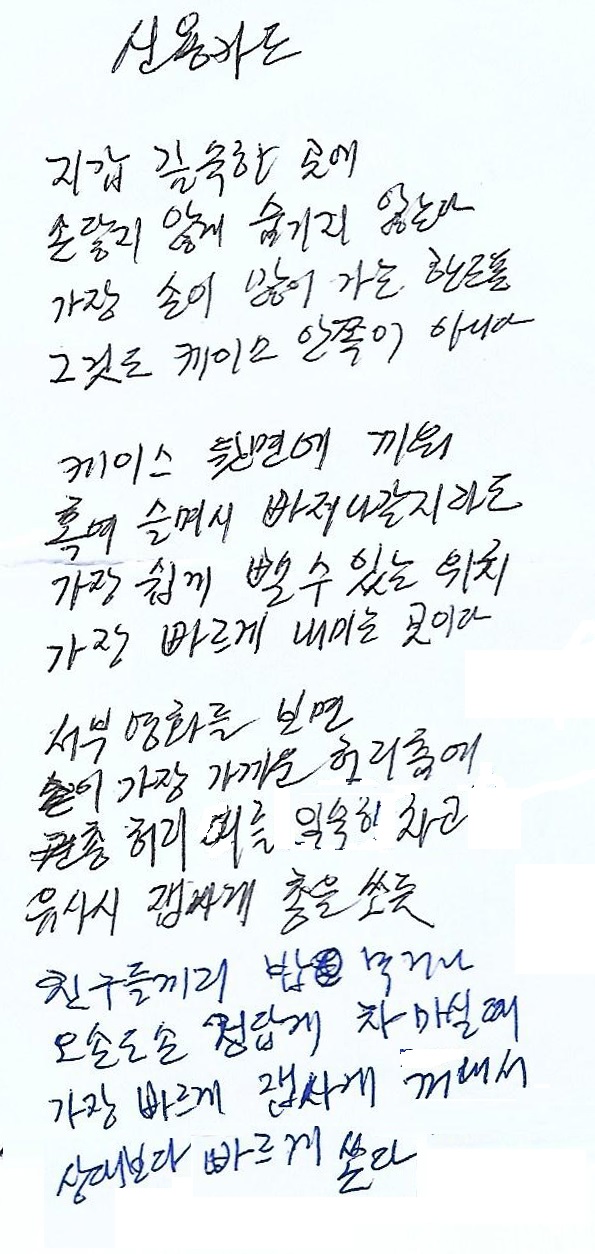 신용카드
지갑 깊숙한 곳에
손닿지 않게 숨기지 않는다
가장 손이 많이 가는 핸드폰
그것도 케이스 안쪽이 아니다
케이스 뒷면에 끼워
혹여 슬며시 빠져나갈지라도
가장 쉽게 뺄 수 있는 위치
가장 빠르게 내미는 곳이다
서부 영화를 보면
손이 가장 가까운 허리춤에
권총 허리 띠를 차고
유사시 잽싸게 총을 쏘듯
친구들끼리 밥 먹거나
오손도손 정답게 차 마실 때
가장 빠르게 잽싸게 꺼내서
상대보다 빠르게 쏜다